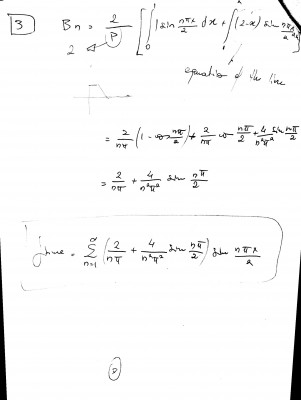 3 Bn = 2/P [ ∫₀¹ 1 sin nπx/2 dx + ∫₁² (2-x) sin nπx/2 dx ]
2
equation of the line
= 2/nπ (1 - cos nπ/2) + 2/nπ cos nπ/2 + 4/n²π² sin nπ/2
= 2/nπ + 4/n²π² sin nπ/2
= ∑ₙ₌₁^∞ ( 2/nπ + 4/n²π² sin nπ/2 ) sin nπx/2